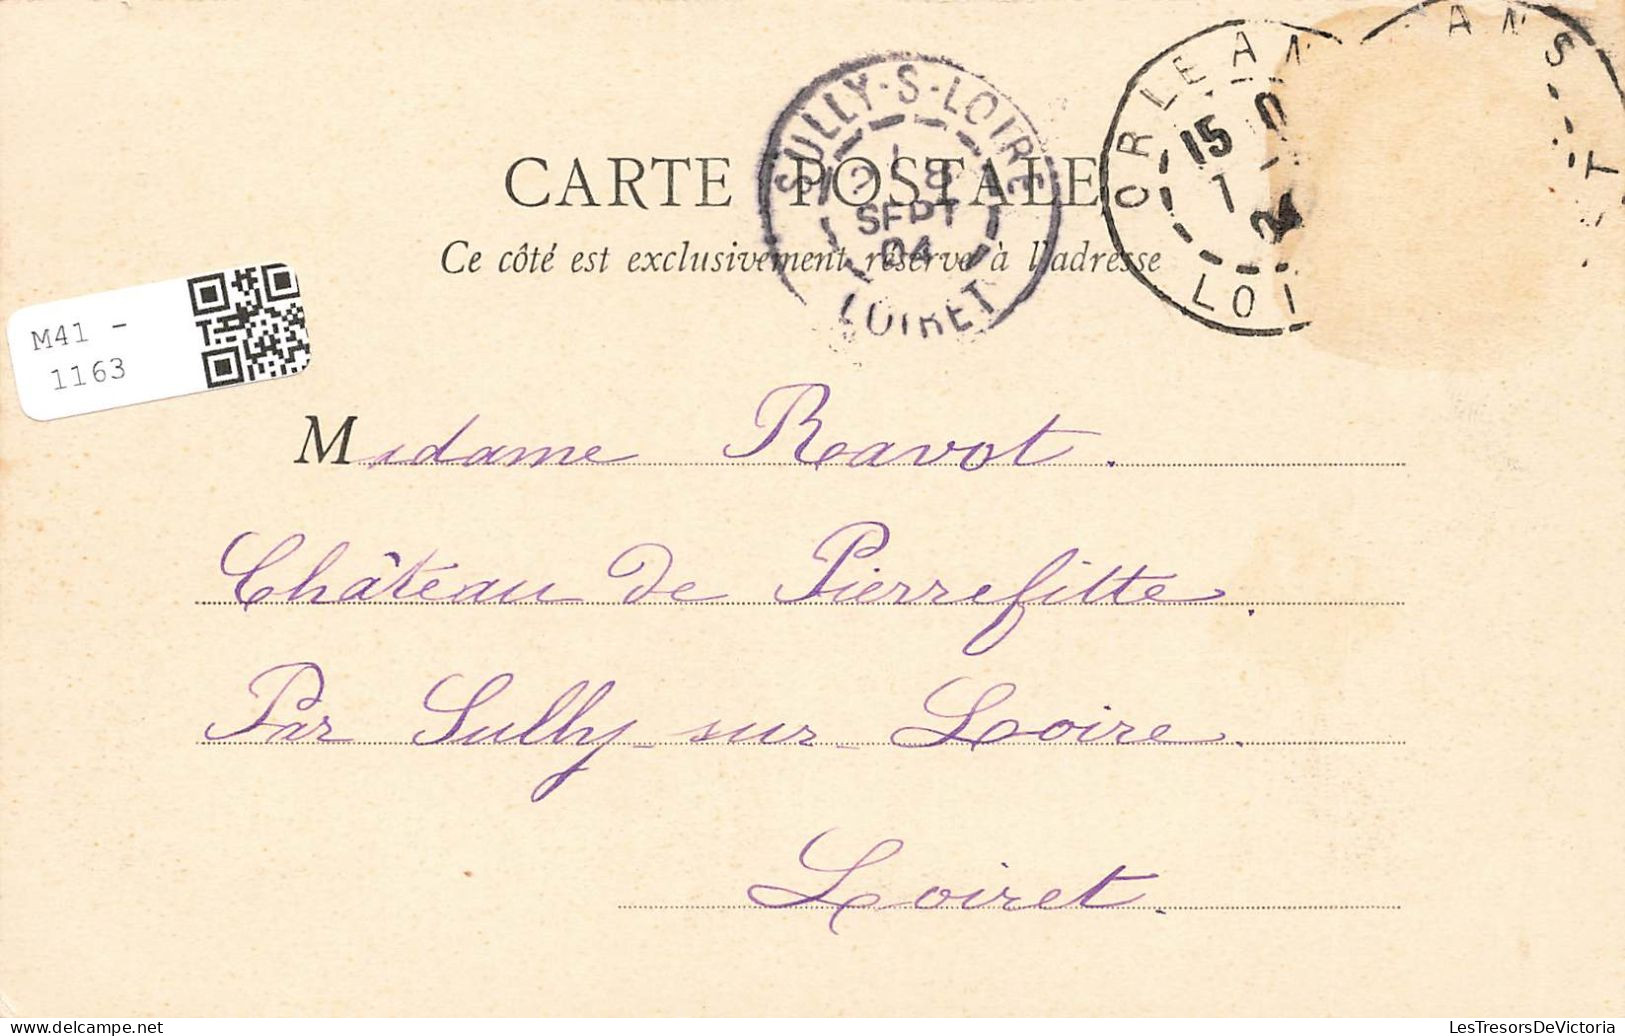 ORLEANS
15
1
LOI
ANS
ET
SULLY-S-LOIRE
8
SEPT
04
LOIRET
CARTE POSTALE
Ce côté est exclusivement réservé à l'adresse
M41 -
1163
Madame Ravot.
Château de Pierrefitte.
Par Sully-sur-Loire.
Loiret.
delcampe.net
LesTresorsDeVictoria